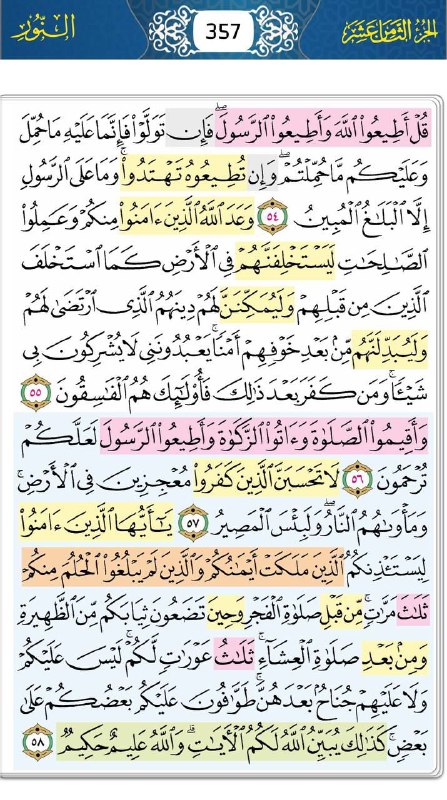 الجزء الثامن عشر 357 النور
قُلْ أَطِيعُوا۟ ٱللَّهَ وَأَطِيعُوا۟ ٱلرَّسُولَۖ فَإِن تَوَلَّوْا۟ فَإِنَّمَا عَلَيْهِ مَا حُمِّلَ
وَعَلَيْكُم مَّا حُمِّلْتُمْۖ وَإِن تُطِيعُوهُ تَهْتَدُوا۟ۚ وَمَا عَلَى ٱلرَّسُولِ
إِلَّا ٱلْبَلَٰغُ ٱلْمُبِينُ ٥٤ وَعَدَ ٱللَّهُ ٱلَّذِينَ ءَامَنُوا۟ مِنكُمْ وَعَمِلُوا۟
ٱلصَّٰلِحَٰتِ لَيَسْتَخْلِفَنَّهُمْ فِى ٱلْأَرْضِ كَمَا ٱسْتَخْلَفَ
ٱلَّذِينَ مِن قَبْلِهِمْ وَلَيُمَكِّنَنَّ لَهُمْ دِينَهُمُ ٱلَّذِى ٱرْتَضَىٰ لَهُمْ
وَلَيُبَدِّلَنَّهُم مِّنۢ بَعْدِ خَوْفِهِمْ أَمْنًاۚ يَعْبُدُونَنِى لَا يُشْرِكُونَ بِى
شَيْـًٔاۚ وَمَن كَفَرَ بَعْدَ ذَٰلِكَ فَأُو۟لَٰٓئِكَ هُمُ ٱلْفَٰسِقُونَ ٥٥
وَأَقِيمُوا۟ ٱلصَّلَوٰةَ وَءَاتُوا۟ ٱلزَّكَوٰةَ وَأَطِيعُوا۟ ٱلرَّسُولَ لَعَلَّكُمْ
تُرْحَمُونَ ٥٦ لَا تَحْسَبَنَّ ٱلَّذِينَ كَفَرُوا۟ مُعْجِزِينَ فِى ٱلْأَرْضِۚ
وَمَأْوَىٰهُمُ ٱلنَّارُۖ وَلَبِئْسَ ٱلْمَصِيرُ ٥٧ يَٰٓأَيُّهَا ٱلَّذِينَ ءَامَنُوا۟
لِيَسْتَـْٔذِنكُمُ ٱلَّذِينَ مَلَكَتْ أَيْمَٰنُكُمْ وَٱلَّذِينَ لَمْ يَبْلُغُوا۟ ٱلْحُلُمَ مِنكُمْ
ثَلَٰثَ مَرَّٰتٍۚ مِّن قَبْلِ صَلَوٰةِ ٱلْفَجْرِ وَحِينَ تَضَعُونَ ثِيَابَكُم مِّنَ ٱلظَّهِيرَةِ
وَمِنۢ بَعْدِ صَلَوٰةِ ٱلْعِشَآءِۚ ثَلَٰثُ عَوْرَٰتٍ لَّكُمْۚ لَيْسَ عَلَيْكُمْ
وَلَا عَلَيْهِمْ جُنَاحٌۢ بَعْدَهُنَّۚ طَوَّٰفُونَ عَلَيْكُم بَعْضُكُمْ عَلَىٰ
بَعْضٍۚ كَذَٰلِكَ يُبَيِّنُ ٱللَّهُ لَكُمُ ٱلْـَٔايَٰتِۗ وَٱللَّهُ عَلِيمٌ حَكِيمٌ ٥٨